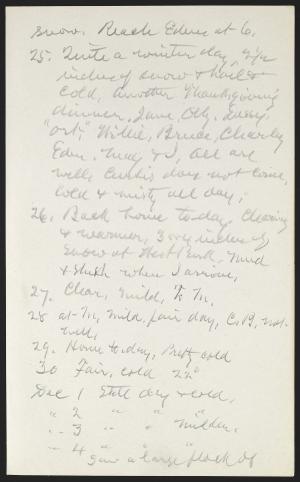 snow. Reach Edens at 6.
25. Quite a winter day, 2 1/2
inches of snow & hail &
cold, another Thanksgiving
dinner. Jane, Olly, Lucy,
"ort," Willie, Bruce, Charley
Eden, May & I, all are
well, Curtis does not come,
cold & misty all day;
26. Back home to-day. Clearing
& warmer, 3 or 4 inches of
snow at West Park. Mud
& slush when I arrive,
27. Clear, mild, to M,
28 at M, mild, fair day, C. B. not
well,
29. Home to-day, Pretty cold
30 Fair, cold 22°
Dec 1 Still dry & cold,
" 2 " " "
" 3 " " milder.
" 4 "
Saw a large flock of